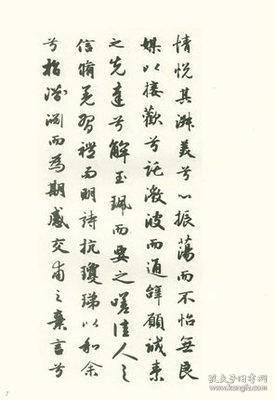 情悦其淑美兮心振荡而不怡无良
媒以接欢兮托微波而通辞愿诚素
之先达兮解玉珮而要之嗟佳人之
信脩羌习礼而明诗抗琼珶以和余
兮指潜渊而为期感交甫之弃言兮
7
孔夫子旧书网